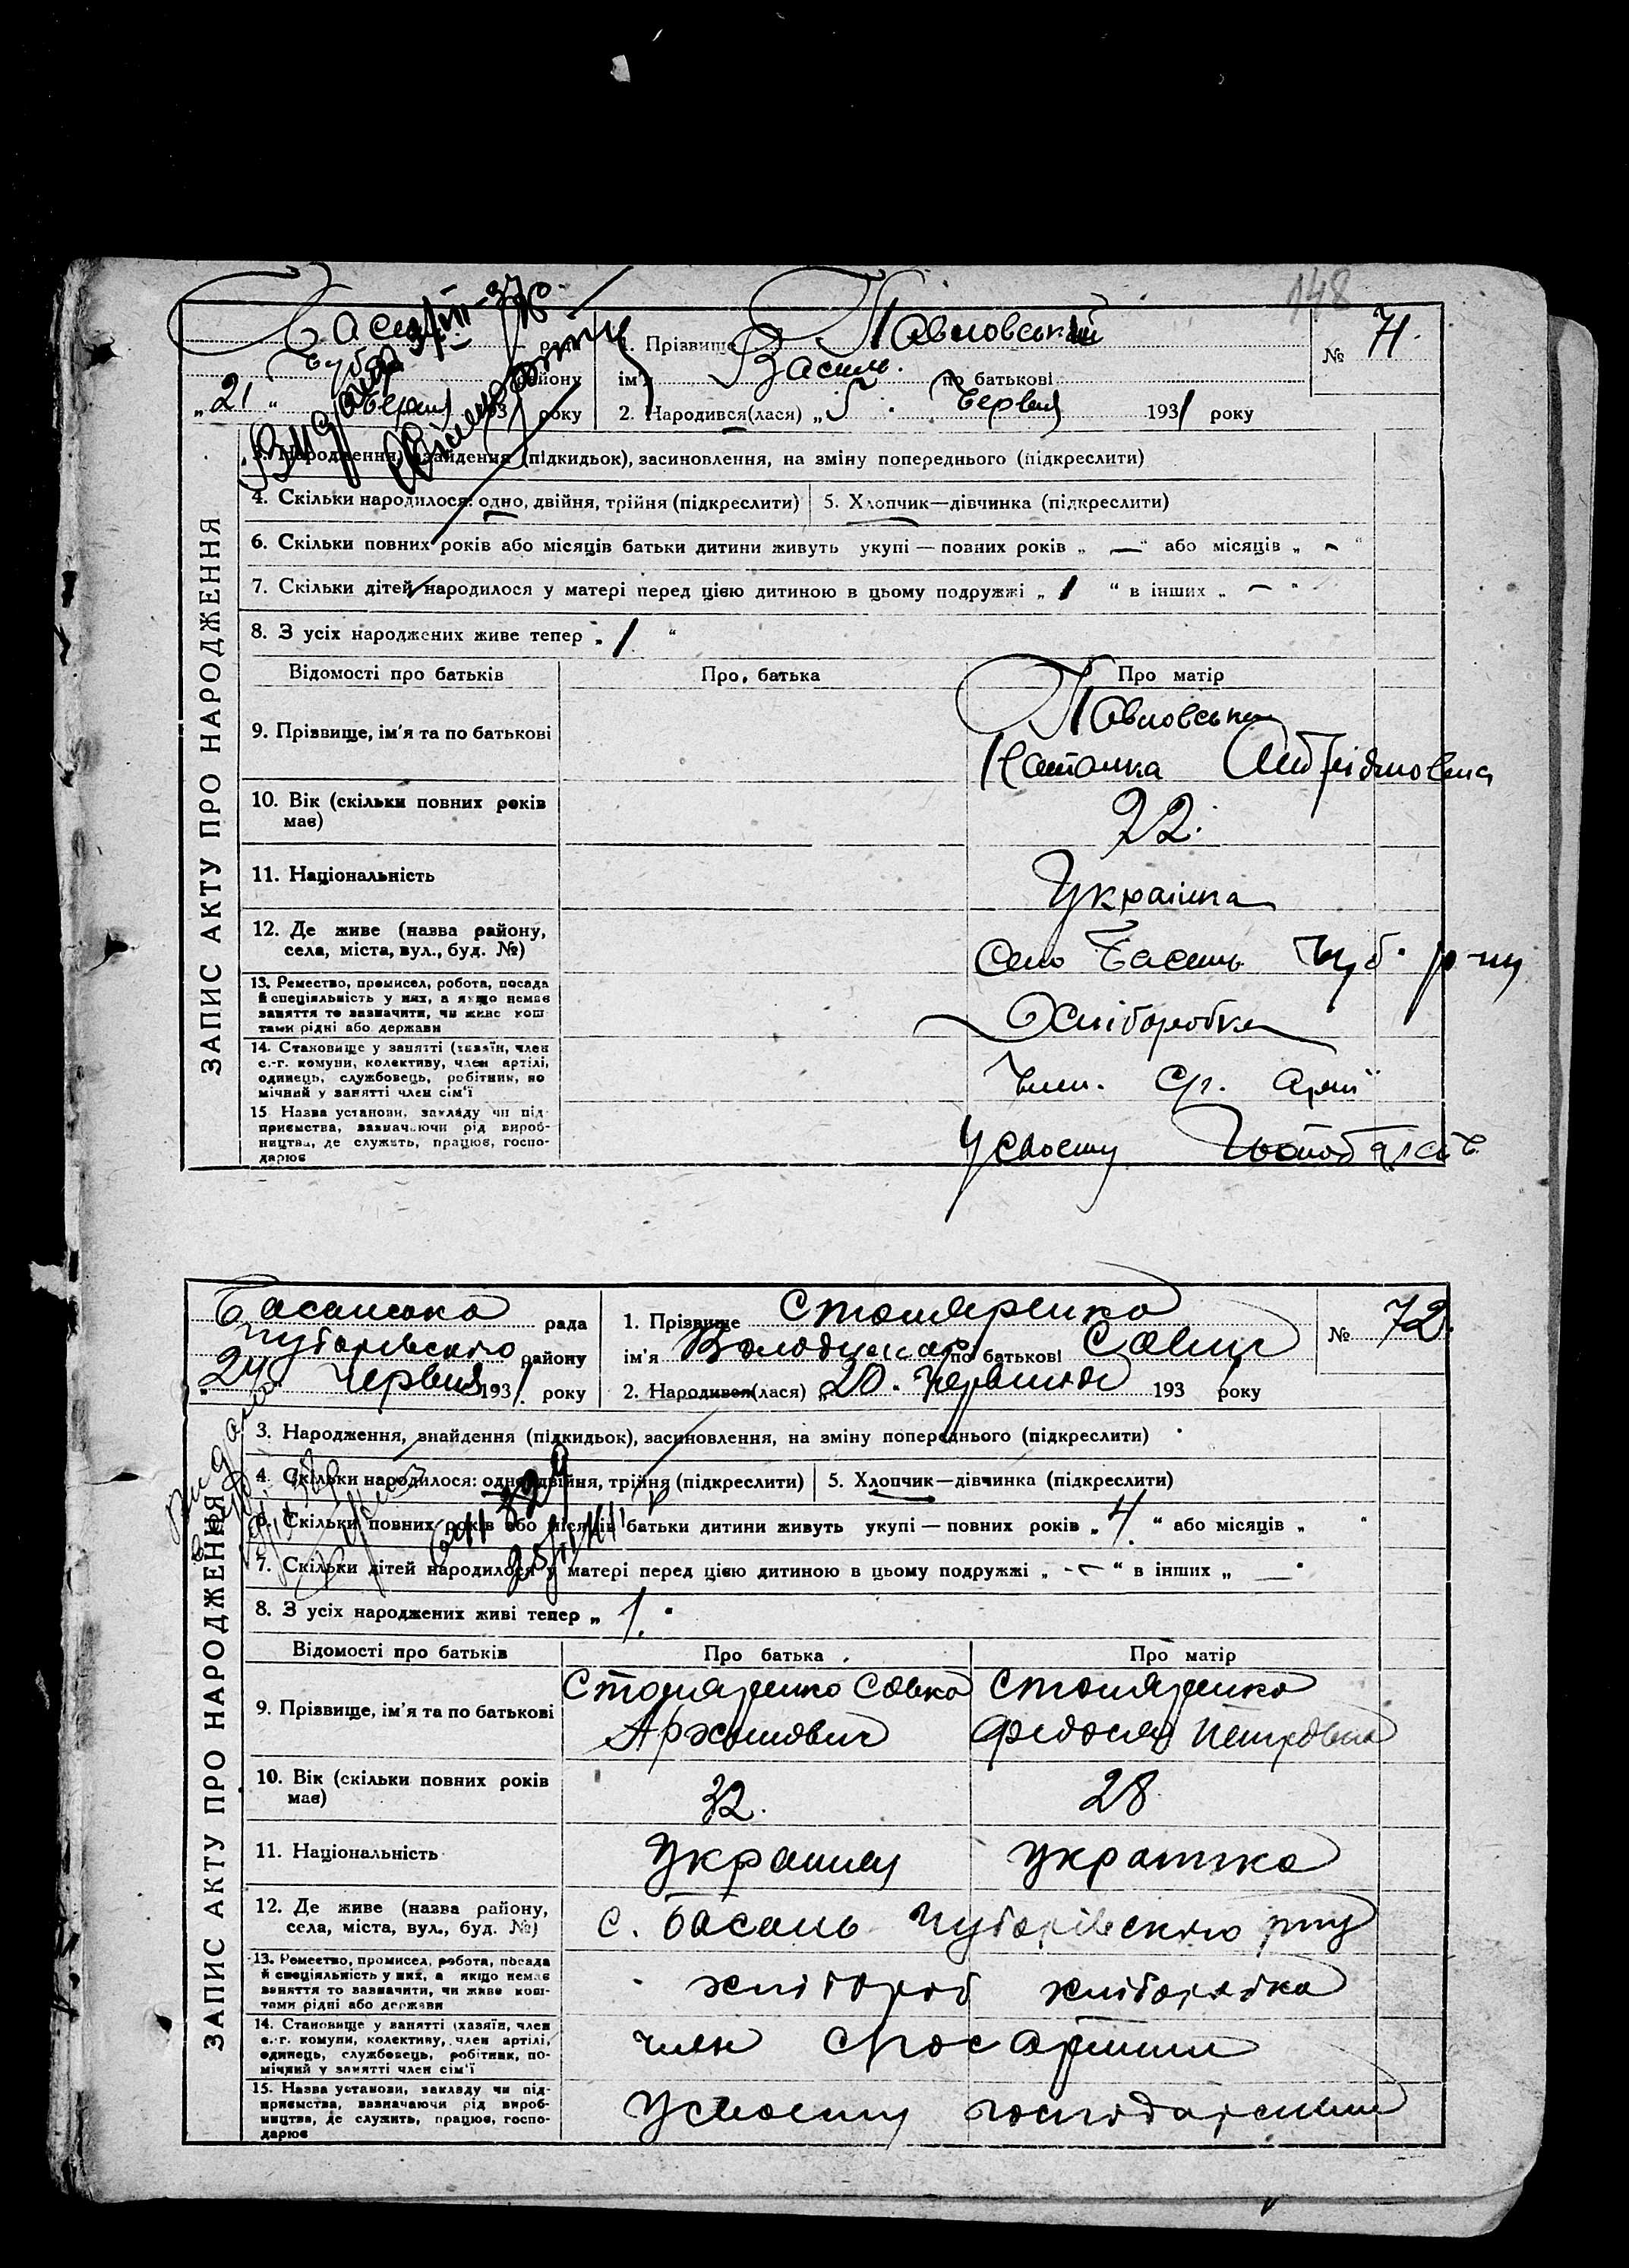 148
рада
району
„21“ 1931 року
1. Прізвище Павловський
ім'я Василь по батькові
2. Народився(лася) „5“ Червня 1931 року
№ 71.
ЗАПИС АКТУ ПРО НАРОДЖЕННЯ
3. Народження, знайдення (підкидьок), засиновлення, на зміну попереднього (підкреслити)
4. Скільки народилося: одно, двійня, трійня (підкреслити)
5. Хлопчик—дівчинка (підкреслити)
6. Скільки повних років або місяців батьки дитини живуть укупі — повних років „ — “ або місяців „ - “
7. Скільки дітей народилося у матері перед цією дитиною в цьому подружжі „ 1 “ в інших „ — “
8. З усіх народжених живе тепер „ 1 “
Відомості про батьків Про батька Про матір
9. Прізвище, ім'я та по батькові
Павловська
Наталка
10. Вік (скільки повних років має)
22.
11. Національність
Українка
12. Де живе (назва району, села, міста, вул., буд. №)
село Басань Чуб. р-ну
13. Ремество, промисел, робота, посада
й спеціяльність у них, а якщо немає
заняття то зазначити, чи живе кош-
тами рідні або держави
Хліборобка
14. Становище у занятті (хазяїн, член
с.-г. комуни, колективу, член артілі,
одинець, службовець, робітник, по
мічний у занятті член сім'ї
член. с/г. арт
15 Назва установи, закладу чи під-
приємства, зазначаючи рід вироб-
ництва, де служить, працює, госпо-
дарює
У своєму
Басанська рада
Чубарівського району
„24“ Червня 1931 року
1. Прізвище Столяренко
ім'я Володимир по батькові Савич
2. Народився(лася) „20. 193 року
№ 72.
ЗАПИС АКТУ ПРО НАРОДЖЕННЯ
3. Народження, знайдення (підкидьок), засиновлення, на зміну попереднього (підкреслити)
4. Скільки народилося: одно, двійня, трійня (підкреслити)
5. Хлопчик—дівчинка (підкреслити)
6. Скільки повних років або місяців батьки дитини живуть укупі — повних років „ 4. “ або місяців „ “
7. Скільки дітей народилося у матері перед цією дитиною в цьому подружжі „ - “ в інших „ — “
8. З усіх народжених живі тепер „ 1. “
Відомості про батьків Про батька Про матір
9. Прізвище, ім'я та по батькові
Столяренко Савка Столяренко
Архипович Федосія Петровна
10. Вік (скільки повних років має)
32. 28
11. Національність
Українец українка
12. Де живе (назва району, села, міста, вул., буд. №)
с. Басань Чубарівського р-ну
13. Ремество, промисел, робота, посада
й спеціяльність у них, а якщо немає
заняття то зазначити, чи живе кош-
тами рідні або держави
хлібороб хліборобка
14. Становище у занятті (хазяїн, член
с.-г. комуни, колективу, член артілі,
одинець, службовець, робітник, по-
мічний у занятті член сім'ї
член
15. Назва установи, закладу чи під-
приємства, зазначаючи рід вироб-
ництва, де служить, працює, госпо-
дарює
У своєму